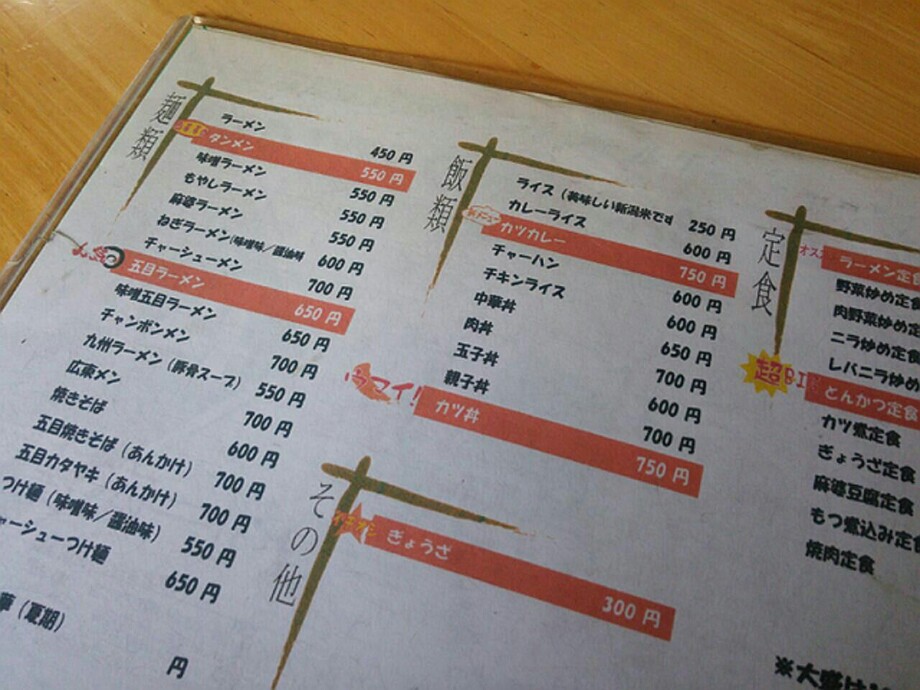 麺類
ラーメン 450円
タンメン 550円
味噌ラーメン 550円
もやしラーメン 550円
麻婆ラーメン 550円
ねぎラーメン(味噌味/醤油味 600円
チャーシューメン 700円
人気 五目ラーメン 650円
味噌五目ラーメン 650円
チャンポンメン 700円
九州ラーメン(豚骨スープ) 550円
広東メン 700円
焼きそば 600円
五目焼きそば(あんかけ) 700円
五目カタヤキ(あんかけ) 700円
つけ麺(味噌味/醤油味) 550円
ャーシューつけ麺 650円
華(夏期) 円
飯類
ライス(美味しい新潟米です 250円
カレーライス 600円
新メニュー カツカレー 750円
チャーハン 600円
チキンライス 600円
中華丼 650円
肉丼 700円
玉子丼 600円
親子丼 700円
ウマイ! カツ丼 750円
その他
ぎょうざ 300円
定食
オス ラーメン定
野菜炒め定食
肉野菜炒め定
ニラ炒め定食
レバニラ炒め
超BI とんかつ定食
カツ煮定食
ぎょうざ定食
麻婆豆腐定食
もつ煮込み定
焼肉定食
※大盛は